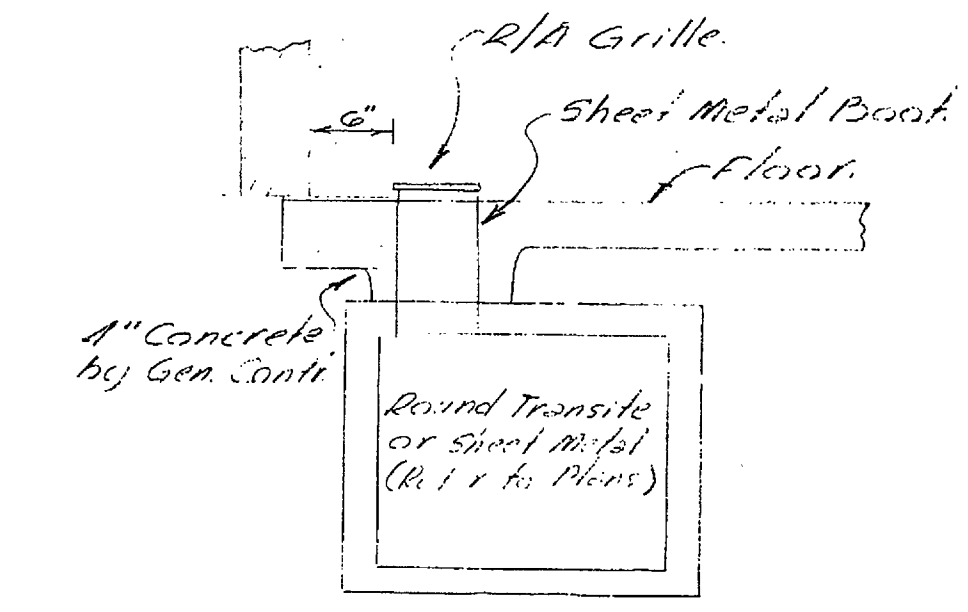 R/A Grille.
6"
Sheet Metal Boot.
Floor.
1" Concrete
by Gen. Contr.
Round Transite
or Sheet Metal
(Refer to Plans)